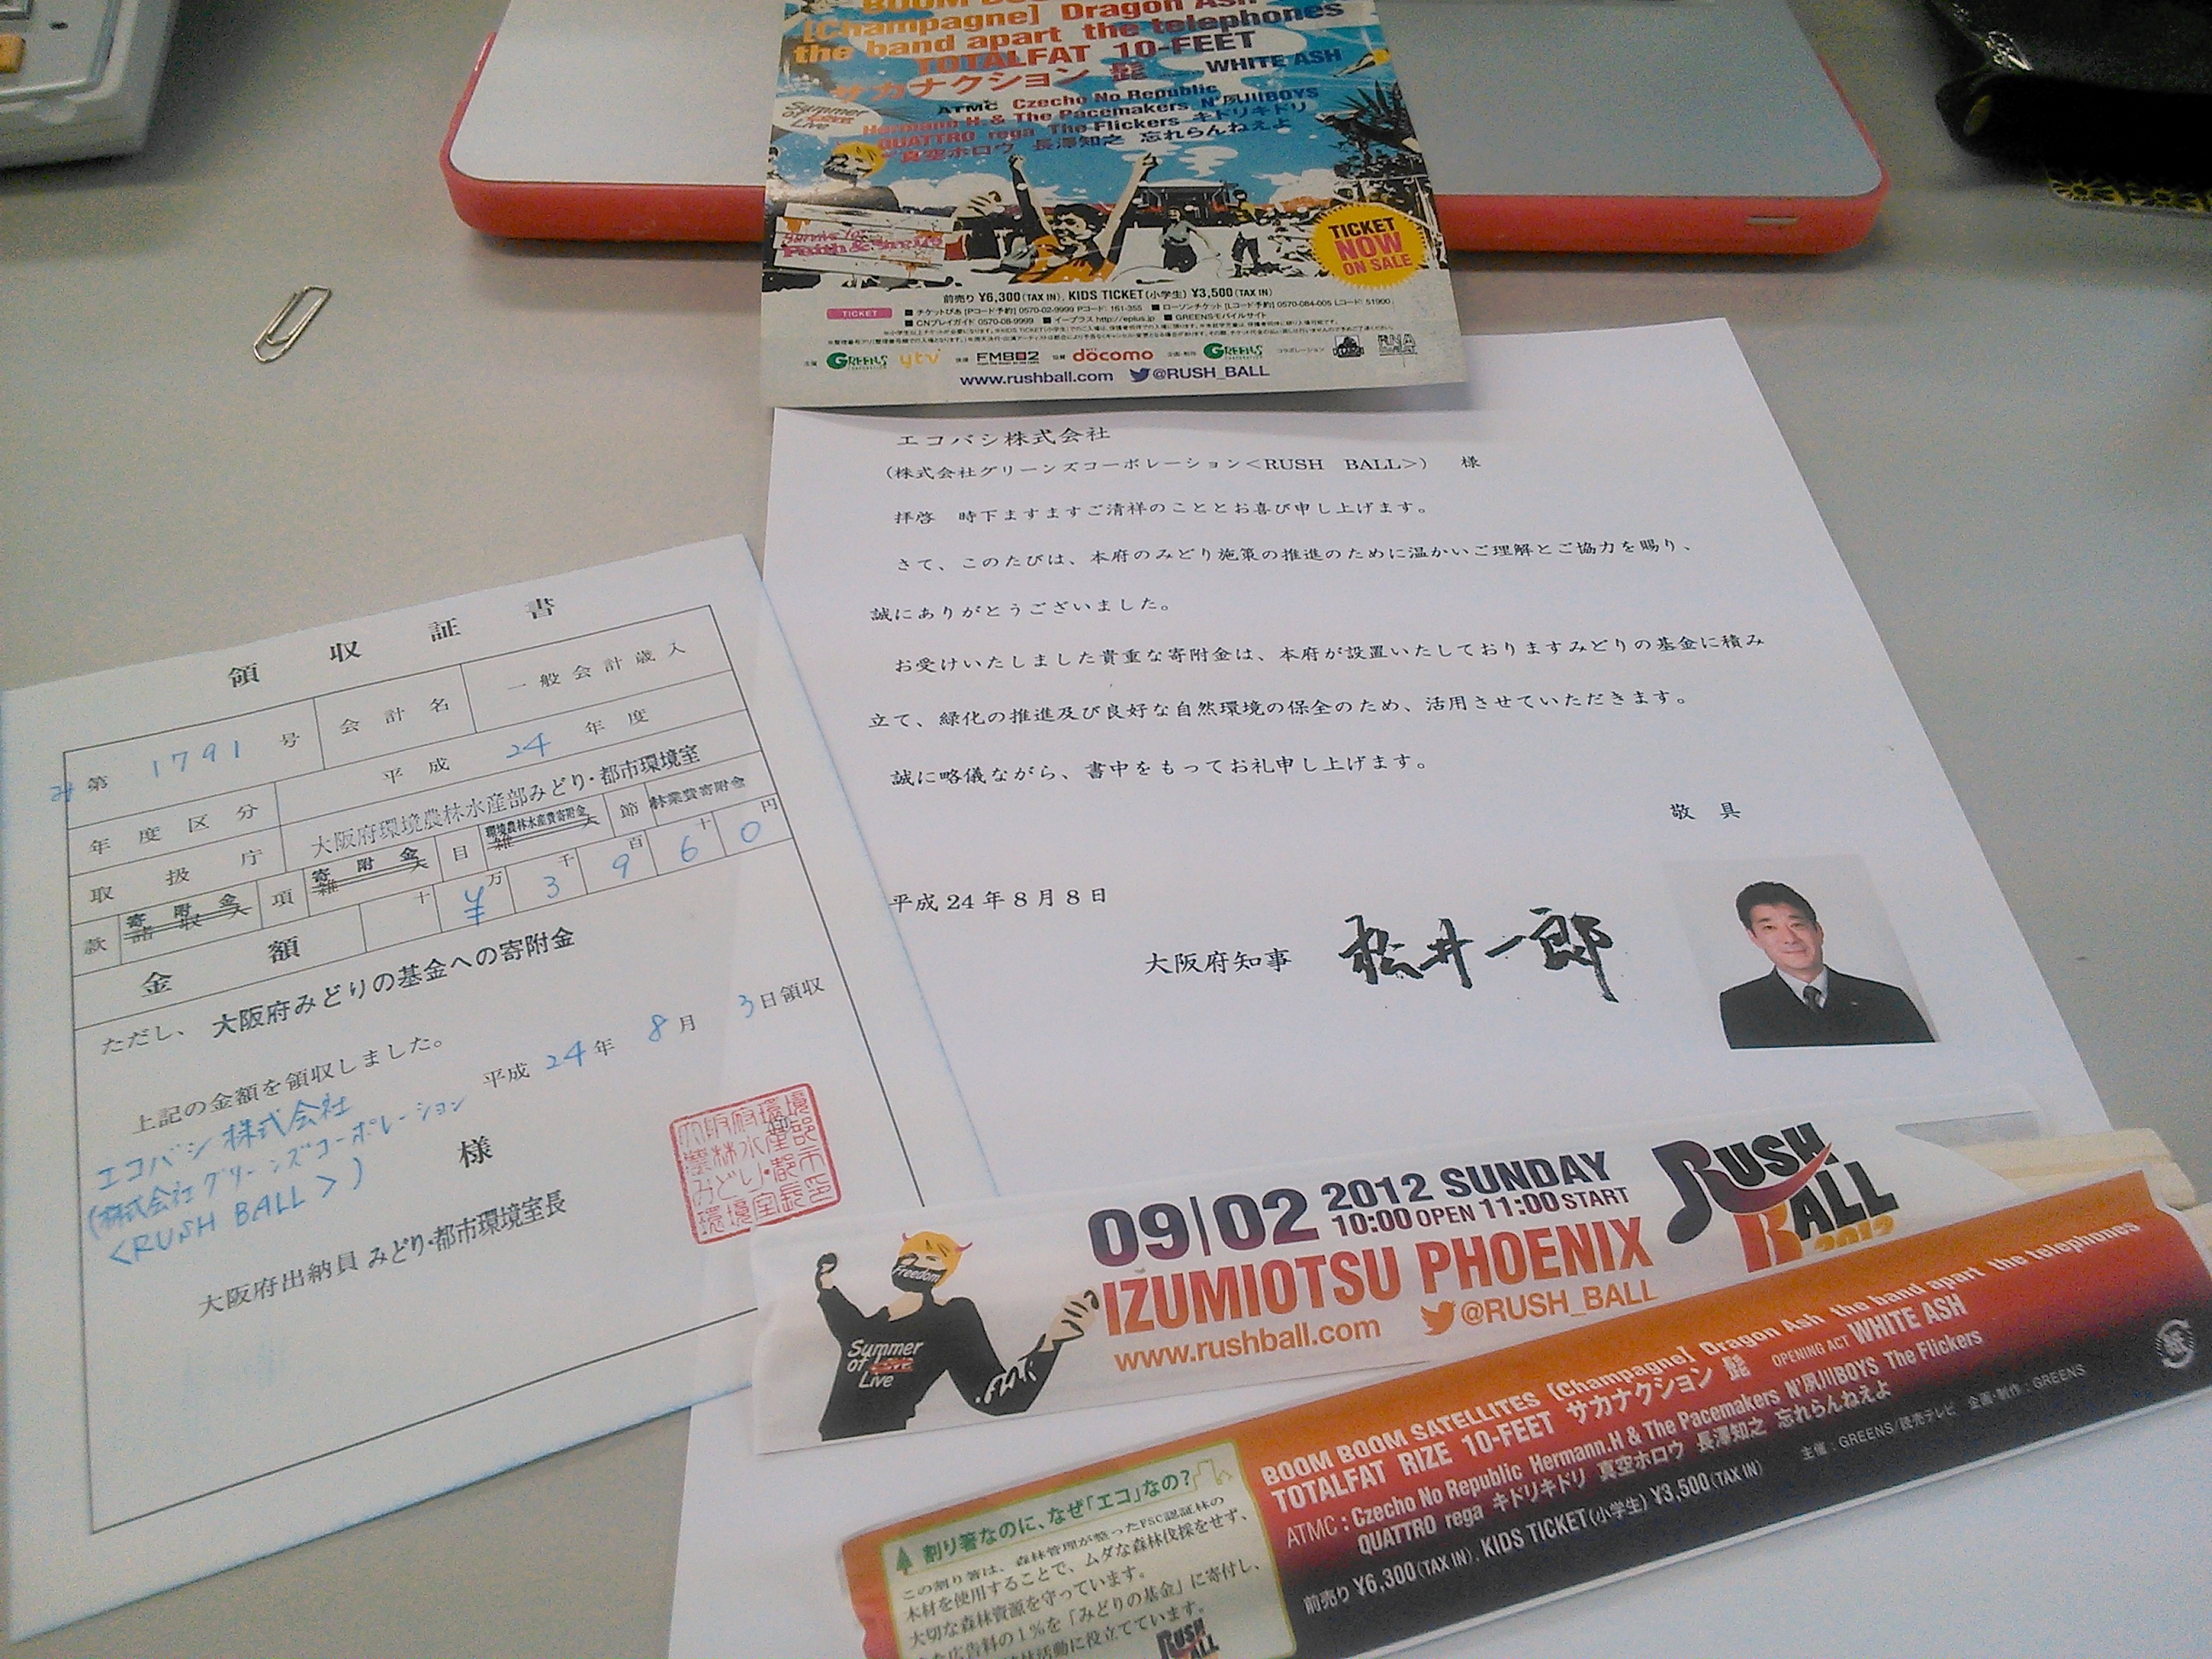 [Champagne] Dragon Ash
the band apart the telephones
TOTALFAT 10-FEET
サカナクション 髭 WHITE ASH
Summer
of
Live
ATMC Czecho No Republic
Hermann H. & The Pacemakers N'夙川BOYS
QUATTRO rega The Flickers キドリキドリ
真空ホロウ 長澤知之 忘れらんねえよ
TICKET
NOW
ON SALE
前売り ¥6,300(TAX IN), KIDS TICKET(小学生) ¥3,500(TAX IN)
TICKET
■ チケットぴあ [Pコード予約] 0570-02-9999 Pコード: 161-355 ■ ローソンチケット [Lコード予約] 0570-084-005 Lコード: 51900
■ CNプレイガイド 0570-08-9999 ■ イープラス http://eplus.jp ■ GREENS!モバイルサイト
主催 GREENS CORPORATION ytv 後援 FM802 協賛 docomo 企画・制作 GREENS CORPORATION コラボレーション
www.rushball.com @RUSH_BALL
エコバシ株式会社
(株式会社グリーンズコーポレーション<RUSH BALL>) 様
拝啓 時下ますますご清祥のこととお喜び申し上げます。
さて、このたびは、本府のみどり施策の推進のために温かいご理解とご協力を賜り、
誠にありがとうございました。
お受けいたしました貴重な寄附金は、本府が設置いたしておりますみどりの基金に積み
立て、緑化の推進及び良好な自然環境の保全のため、活用させていただきます。
誠に略儀ながら、書中をもってお礼申し上げます。
敬具
平成24年8月8日
大阪府知事 松井一郎
領収証書
み第 1791 号 会計名 一般会計歳入
年度区分 平成 24 年度
取扱庁 大阪府環境農林水産部みどり・都市環境室
款 寄附金 項 寄附金 目 環境農林水産費寄附金 節 林業費寄附金
金額 十 万 千 百 十 円
¥ 3 9 6 0
ただし、 大阪府みどりの基金への寄附金
上記の金額を領収しました。
平成 24 年 8 月 3 日領収
エコバシ株式会社
(株式会社グリーンズコーポレーション
<RUSH BALL>)
様
大阪府出納員 みどり・都市環境室長
09|02 2012 SUNDAY
10:00 OPEN 11:00 START
IZUMIOTSU PHOENIX
www.rushball.com @RUSH_BALL
RUSH
BALL
2012
Freedom
Summer
of
Live
BOOM BOOM SATELLITES [Champagne] Dragon Ash the band apart the telephones
TOTALFAT RIZE 10-FEET サカナクション 髭 OPENING ACT WHITE ASH
ATMC : Czecho No Republic Hermann.H & The Pacemakers N'夙川BOYS The Flickers
QUATTRO rega キドリキドリ 真空ホロウ 長澤知之 忘れらんねえよ
前売り ¥6,300(TAX IN), KIDS TICKET(小学生) ¥3,500(TAX IN) 主催：GREENS/読売テレビ 企画・制作：GREENS
紙
割り箸なのに、なぜ「エコ」なの?
この割り箸は、森林管理が整ったFSC認証林の
木材を使用することで、ムダな森林伐採をせず、
大切な森林資源を守っています。
広告料の1%を「みどりの基金」に寄付し、
活動に役立てています。
RUSH
BALL